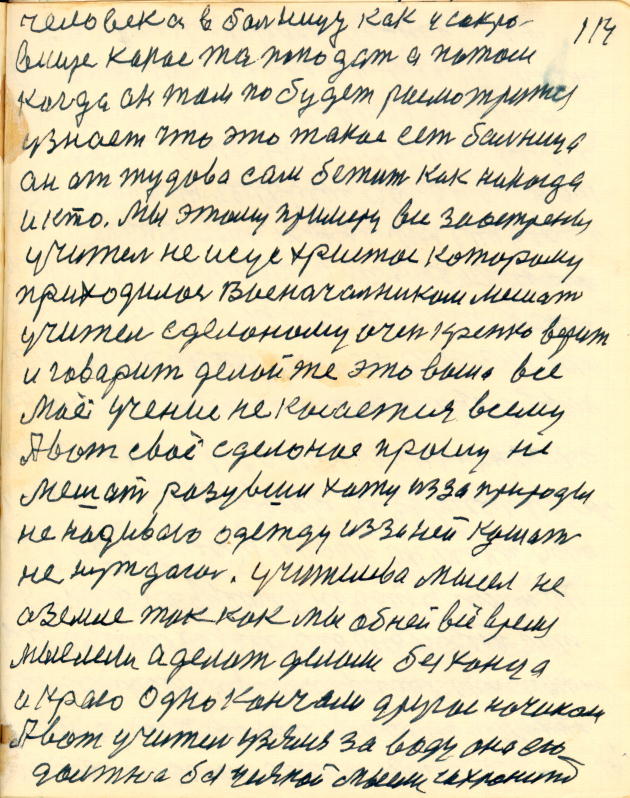 114
человека в болницу как у сокро-
вище карое та поподат а потом
когда он там побудет расмотрится
узнает что это такое ест болница
он от тудова сам бежит как никогда
и кто. Мы этому примеру все заострены
учител не исус христос которому
приходилос Военачалником мешат
учител сделоному очен крепко верит
и говарит делой же это ваше все
Моё учение не косается всему
А вот своё сделоное прошу не
мешат разувши хожу из за природы
не надиваю одежду из за ней кушат
не нуждаюс. учителева мысел не
о земле так как мы об ней всё время
мыслели а делат делали без конца
и краю одно кончали другое начинали
А вот учител взялся за воду она ею
должна быт мысли сохранит